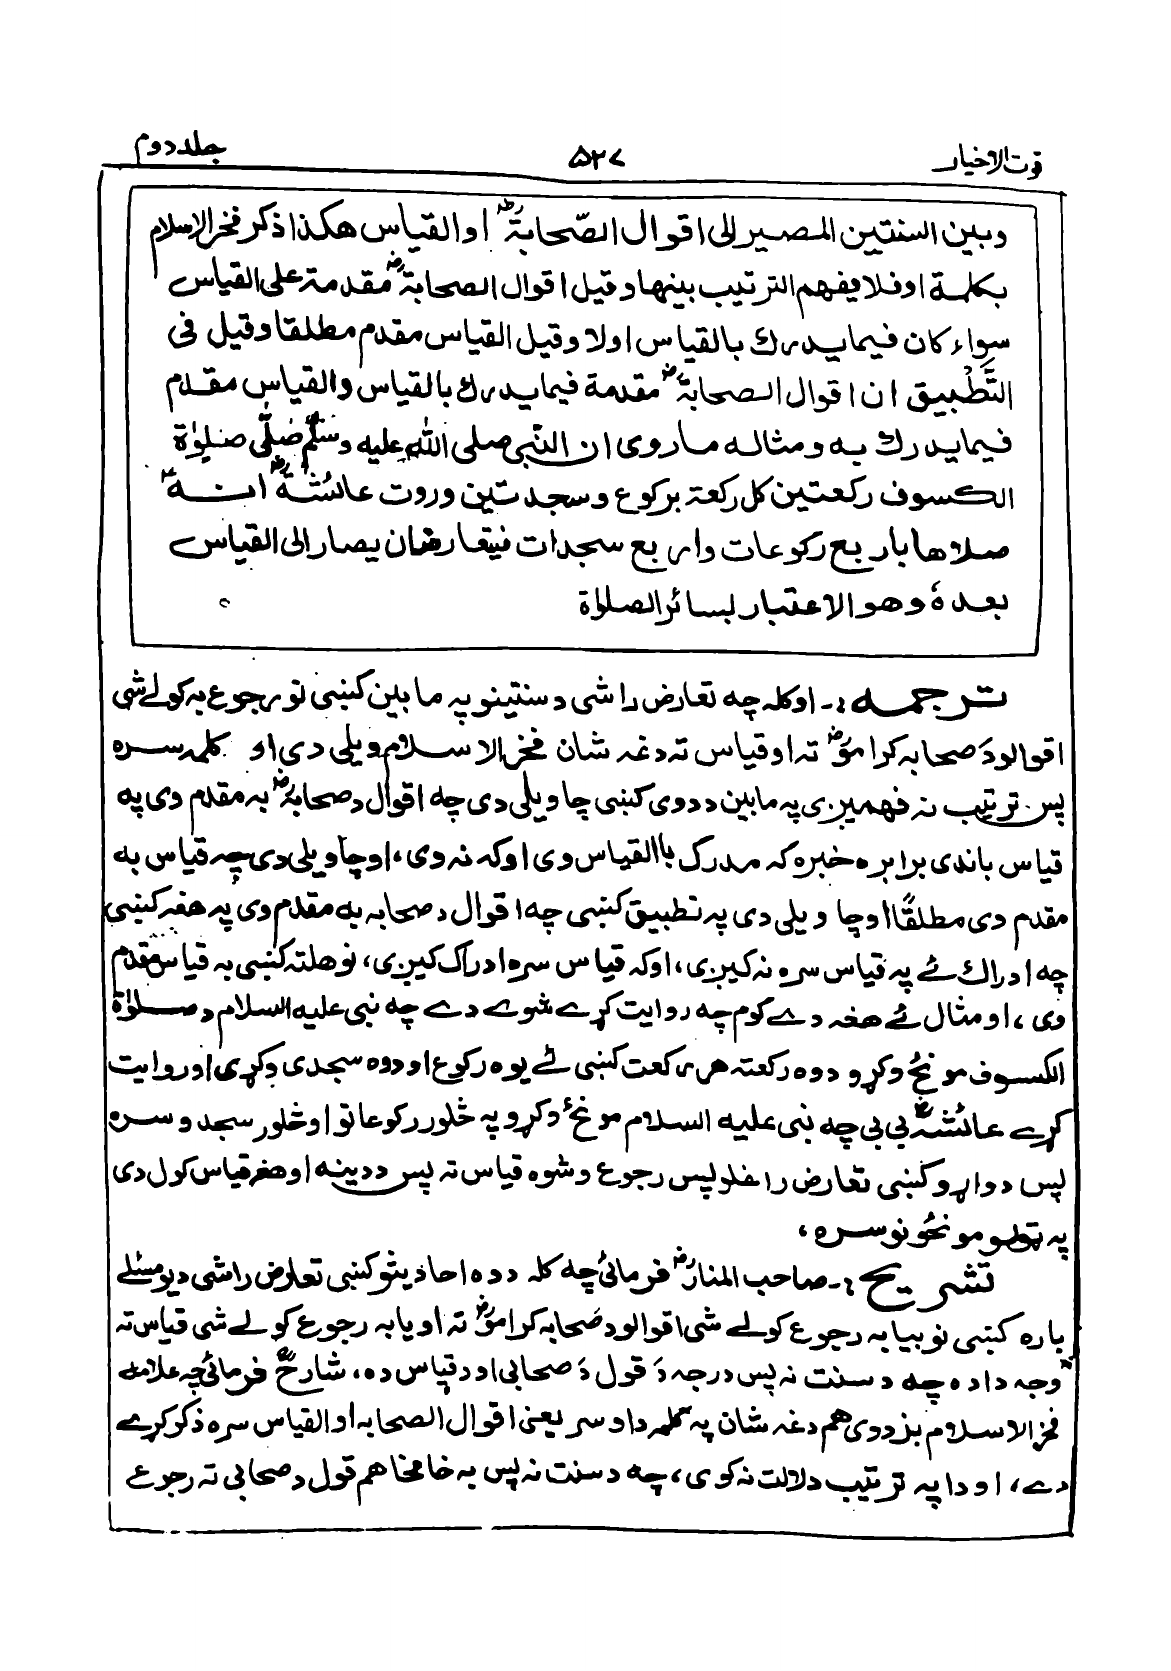 قوت الاخیار ۵۲۷ جلد دوم
وبین السنتین المصیر الی اقوال الصّحابة رضہ او القیاس هکذا ذکر فخر الاسلام
بکلمة او فلا یفهم الترتیب بینها وقیل اقوال الصحابة رض مقدمة علی القیاس
سواء کان فیما یدرك بالقیاس اولا وقیل القیاس مقدم مطلقا وقیل فی
التَّطبیق ان اقوال الصحابة رض مقدمة فیما یدرك بالقیاس والقیاس مقدم
فیما یدرك به ومثاله ماروی ان النّبی صلی الله علیه وسلّم صَلّی صلوٰة
الکسوف رکعتین کل رکعة برکوع وسجدتین وروت عائشة رض انه
صلاها باربع رکوعات واربع سجدات فیتعارضان یصار الی القیاس
بعده وهو الاعتبار لسائر الصلوٰة
ترجمه :- اوکله چه تعارض راشی د سنتینو په مابین کښی نو رجوع به کولے شی
اقوالو دَ صحابه کرامو رض ته او قیاس ته دغه شان فخر الاسلام ویلی دی او کلمه سره
پس ترتیب نه فهمیږی په مابین ددوی کښی چا ویلی دی چه اقوال د صحابه رض به مقدم دی په
قیاس باندی برابره خبره که مدرك باالقیاس وی اوکه نه وی، اوچا ویلی دی چه قیاس به
مقدم دی مطلقًا اوچا ویلی دی په تطبیق کښی چه اقوال د صحابه به مقدم وی په هغه کښی
چه ادراك ئے په قیاس سره نه کیږی، اوکه قیاس سره ادراك کیږی، نو هلته کښی به قیاس مقدم
وی، او مثال ئے هغه دے کوم چه روایت کړے شوے دے چه نبی علیه السلام د صلوٰة
الکسوف مونځ وکړو دوه رکعته هر رکعت کښی ئے یوه رکوع او دوه سجدی وکړی او روایت
کړے عائشہ رض بی بی چه نبی علیه السلام مونځ وکړو په څلور رکوعاتو او څلور سجدو سره
پس دواړو کښی تعارض راغلو پس رجوع وشوه قیاس ته پس ددینه او هغه قیاس کول دی
په ټولو مونځونو سره،
تشریح :- صاحب المنار رض فرمائی چه کله ددوه احادیثو کښی تعارض راشی دیو مسئلے
باره کښی نو بیا به رجوع کولے شی اقوالو د صحابه کرامو رض ته او یا به رجوع کولے شی قیاس ته
وجه داده چه د سنت نه پس درجه دَ قول دَ صحابی او د قیاس ده، شارح فرمائی چه علامه
فخر الاسلام بزدوی هم دغه شان په کلمه د او سره یعنی اقوال الصحابه او القیاس سره ذکر کړے
دے، او دا په ترتیب دلالت نه کوی، چه د سنت نه پس به خامخا هم قول د صحابی ته رجوع